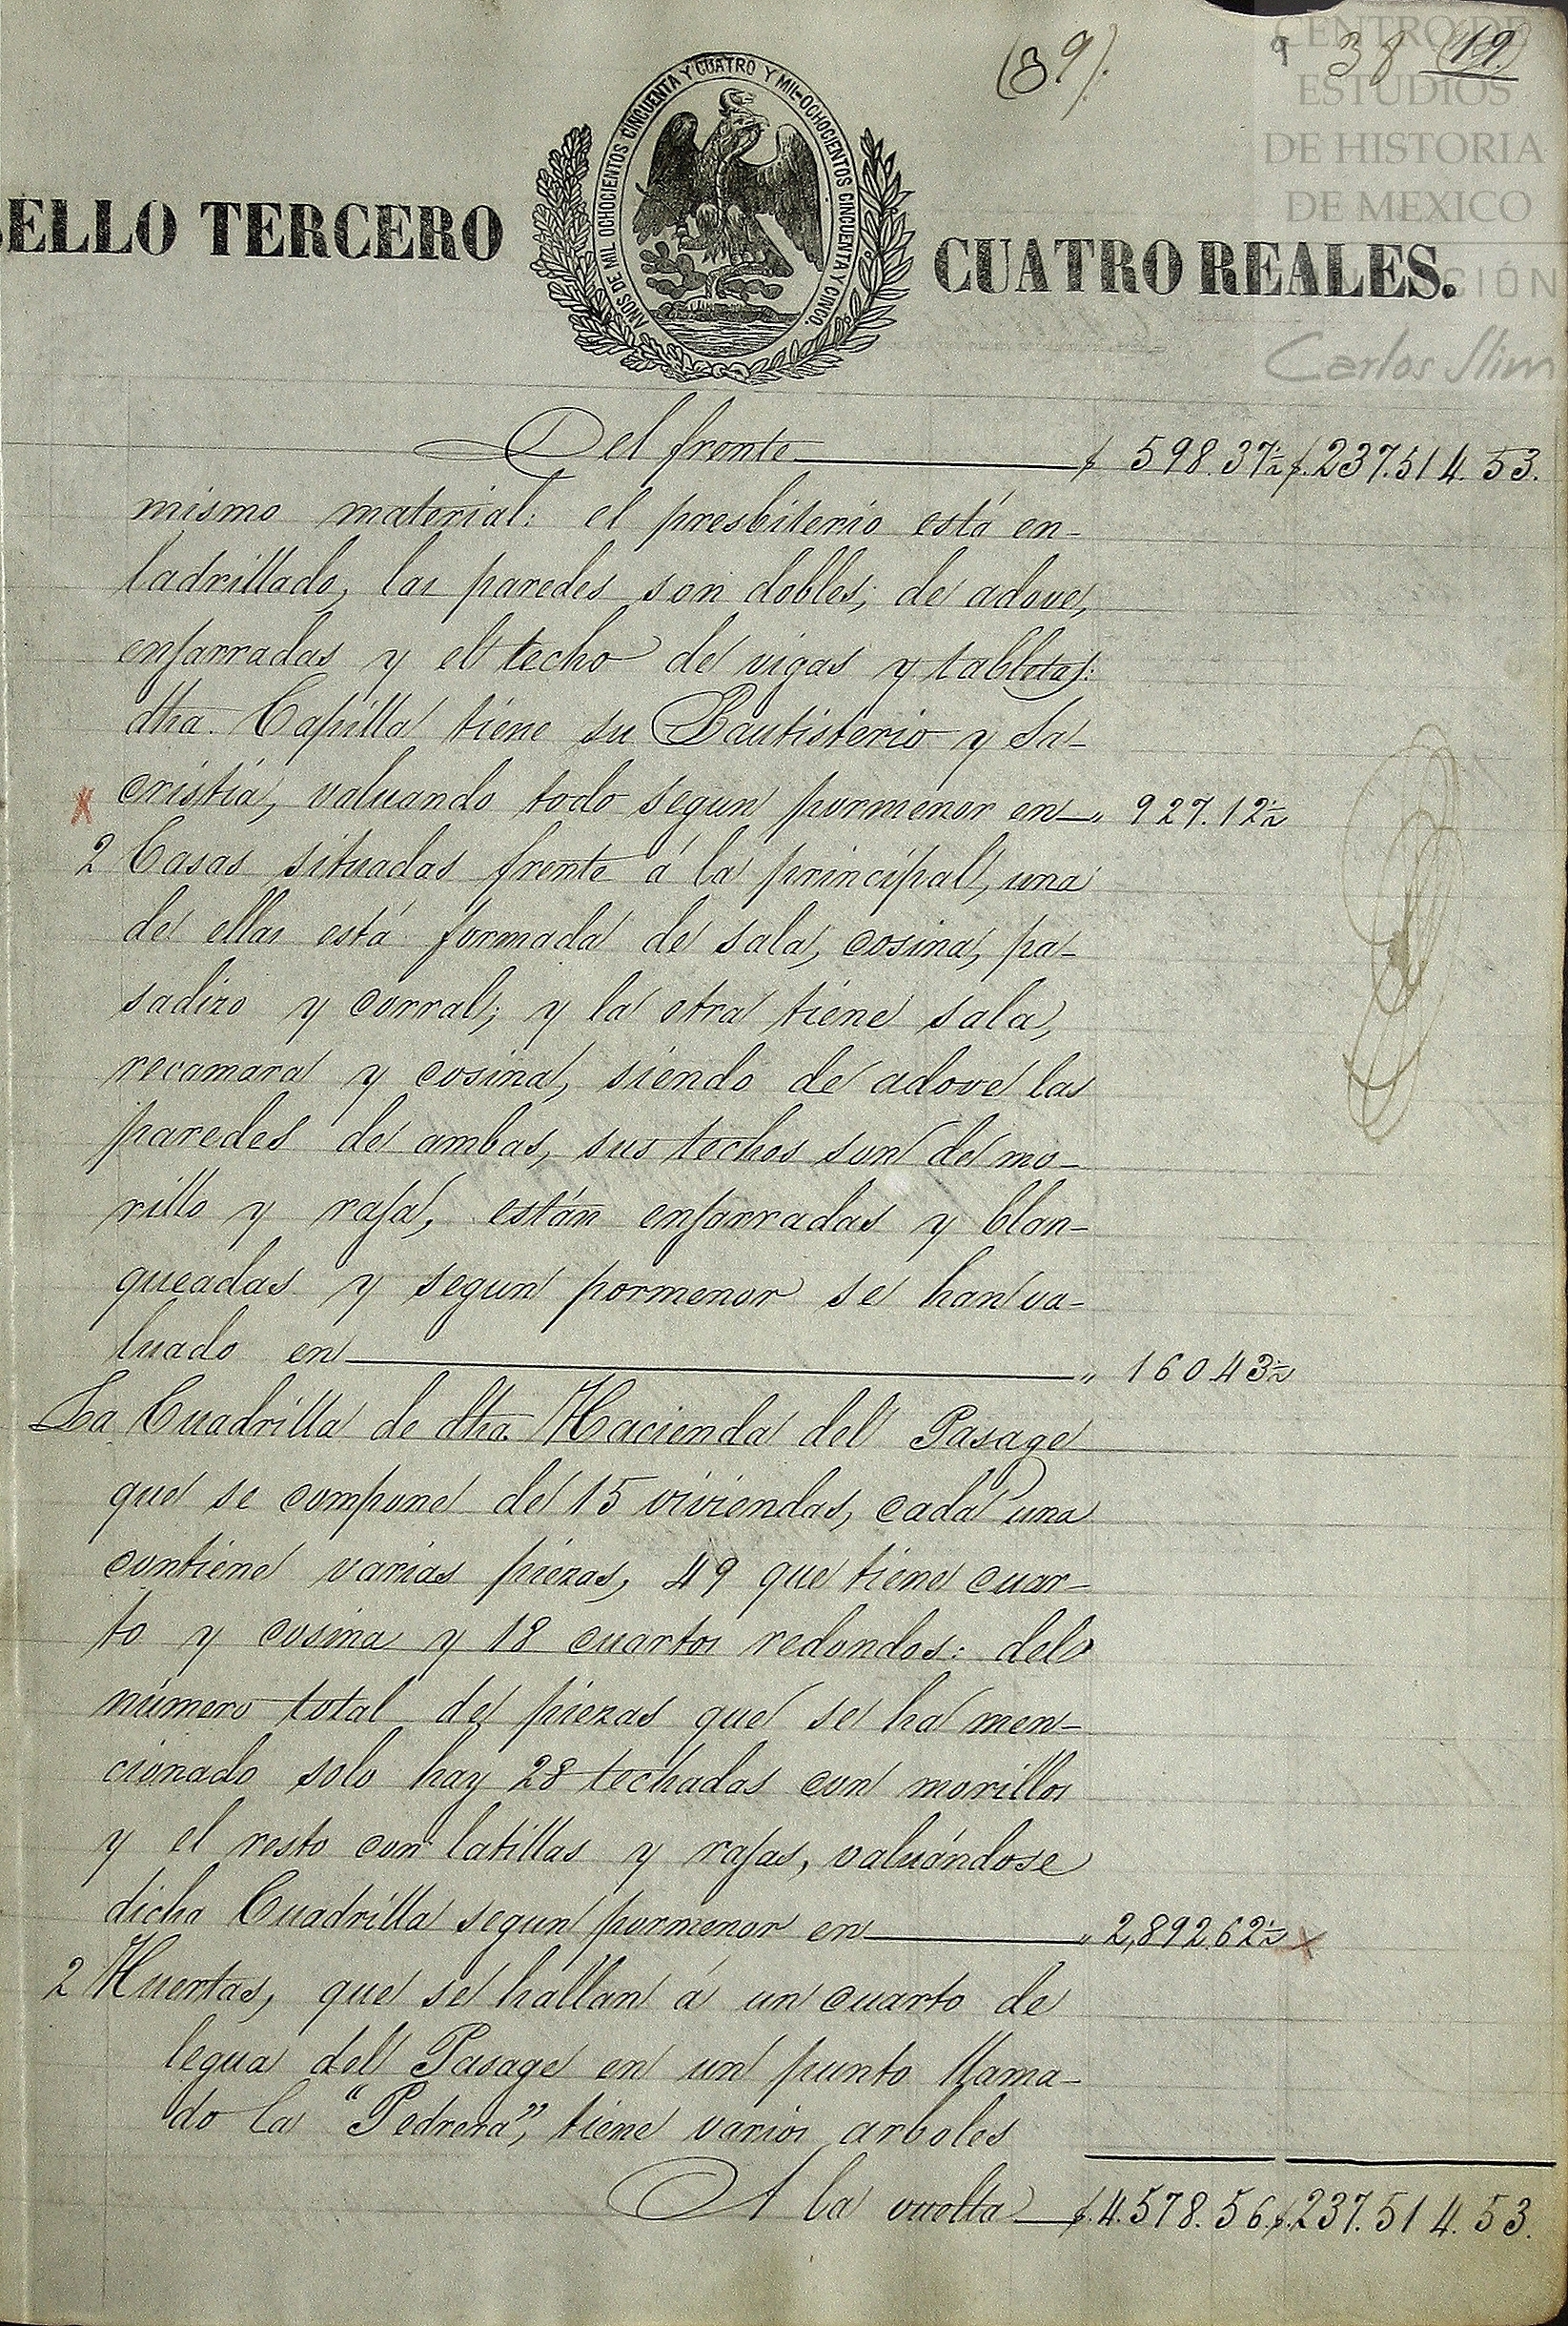 (39).
9 38 (19)
CENTRO DE
ESTUDIOS
DE HISTORIA
DE MEXICO
Carlos Slim
AÑOS DE MIL OCHOCIENTOS CINCUENTA Y CUATRO Y MIL-OCHOCIENTOS CINCUENTA Y CINCO.
SELLO TERCERO CUATRO REALES.
Del frente $ 598.37½ $.237.514.53.
mismo material: el presbiterio está en-
ladrillado, las paredes son dobles, de adove,
enjarradas y el techo de vigas y tabletas:
dha. Capilla tiene su Bautisterio y Sa-
cristía, valuando todo segun pormenor en „ 927.12½
2 Casas situadas frente á la principal, una
de ellas está formada de sala, cosina, pa-
sadizo y corral; y la otra tiene sala,
recamara y cosina, siendo de adove las
paredes de ambas, sus techos son de mo-
rillo y raja, están enjarradas y blan-
queadas y segun pormenor se han va-
luado en „ 160.43½
La Cuadrilla de dha. Hacienda del Pasage
que se compone de 15 viviendas, cada una
contiene varias piezas, 49 que tiene cuar-
to y cosina y 18 cuartos redondos: del
número total de piezas que se ha men-
cionado solo hay 28 techadas con morillos
y el resto con latillas y rajas, valuándose
dicha Cuadrilla segun pormenor en „ 2,892.62½
2 Huertas, que se hallan á un cuarto de
legua del Pasage en un punto llama-
do la "Pedrera", tiene varios arboles
A la vuelta $.4.578.56.$.237.514.53.